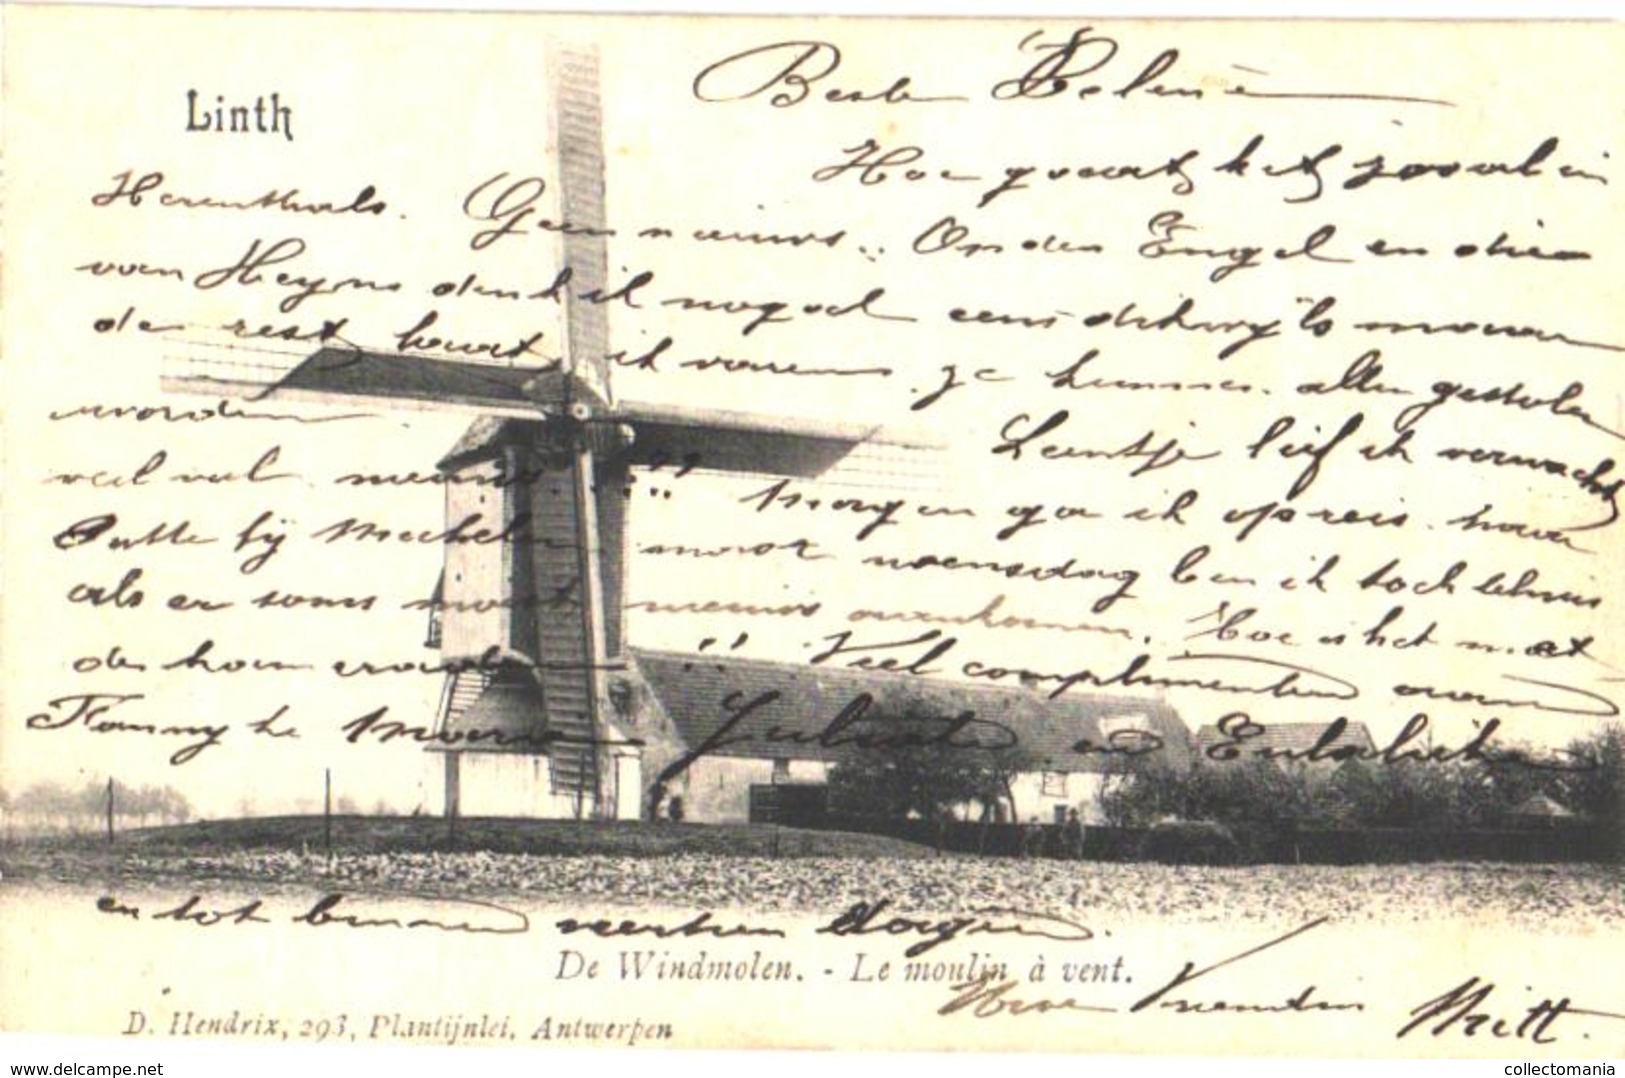 Linth
Beste Helene
Hoe gaat het zooal in
Herenthals. Geen nieuws.. Op den Engel en die
van Heyns denk ik nogal eens dikwijls maar
de rest haat ik varens ze kunnen allen gestolen
worden
Leentje lief ik verwacht
veel nieuws
Morgen ga ik op reis naar
Putte bij Mechelen maar woensdag ben ik toch thuis
als er soms moest nieuws overkomen. Hoe is het met
den !! Veel complimenten aan
Fanny Juliette en Enlalie
en tot binnen veertien dagen.
De Windmolen. - Le moulin à vent.
Uwe Vriendin
D. Hendrix, 293, Plantijnlei, Antwerpen
www.delcampe.net
collectomania